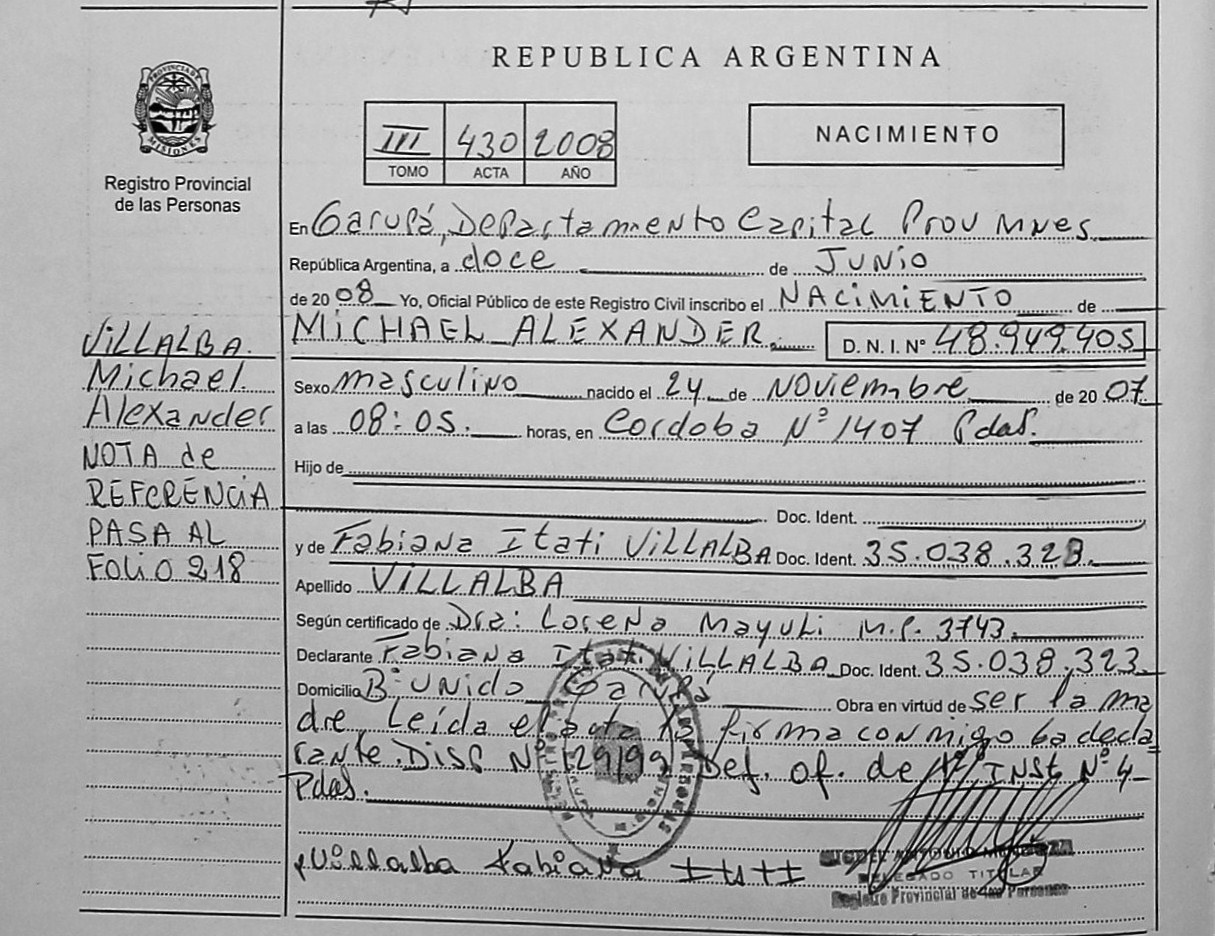 REPUBLICA ARGENTINA
PROVINCIA DE MISIONES
Registro Provincial
de las Personas
III 430 2008
TOMO ACTA AÑO
NACIMIENTO
En Garupá, Departamento Capital Prov Mnes
República Argentina, a doce de Junio
de 2008 Yo, Oficial Público de este Registro Civil inscribo el NACIMIENTO de
MICHAEL ALEXANDER D. N. I. N° 48.949.405
Sexo masculino nacido el 24 de Noviembre de 2007
a las 08:05. horas, en Cordoba N° 1407 Pdas.
Hijo de
Doc. Ident.
y de Fabiana Itati VILLALBA Doc. Ident. 35.038.323.
Apellido VILLALBA
Según certificado de Dra: Lorena Mayuli M.P. 3743.
Declarante Fabiana Itati VILLALBA Doc. Ident. 35.038.323
Domicilio B° Unido Garupá Obra en virtud de ser la ma
dre Leída el acta la firma conmigo la decla
rante. Disp N° 129/99 Def. of. de Inst N° 4-
Pdas.
VILLALBA
Michael
Alexander
NOTA de
REFERENCIA
PASA AL
FOLIO 218
Villalba Fabiana Itati
DELEGADO TITULAR
Registro Provincial de las Personas